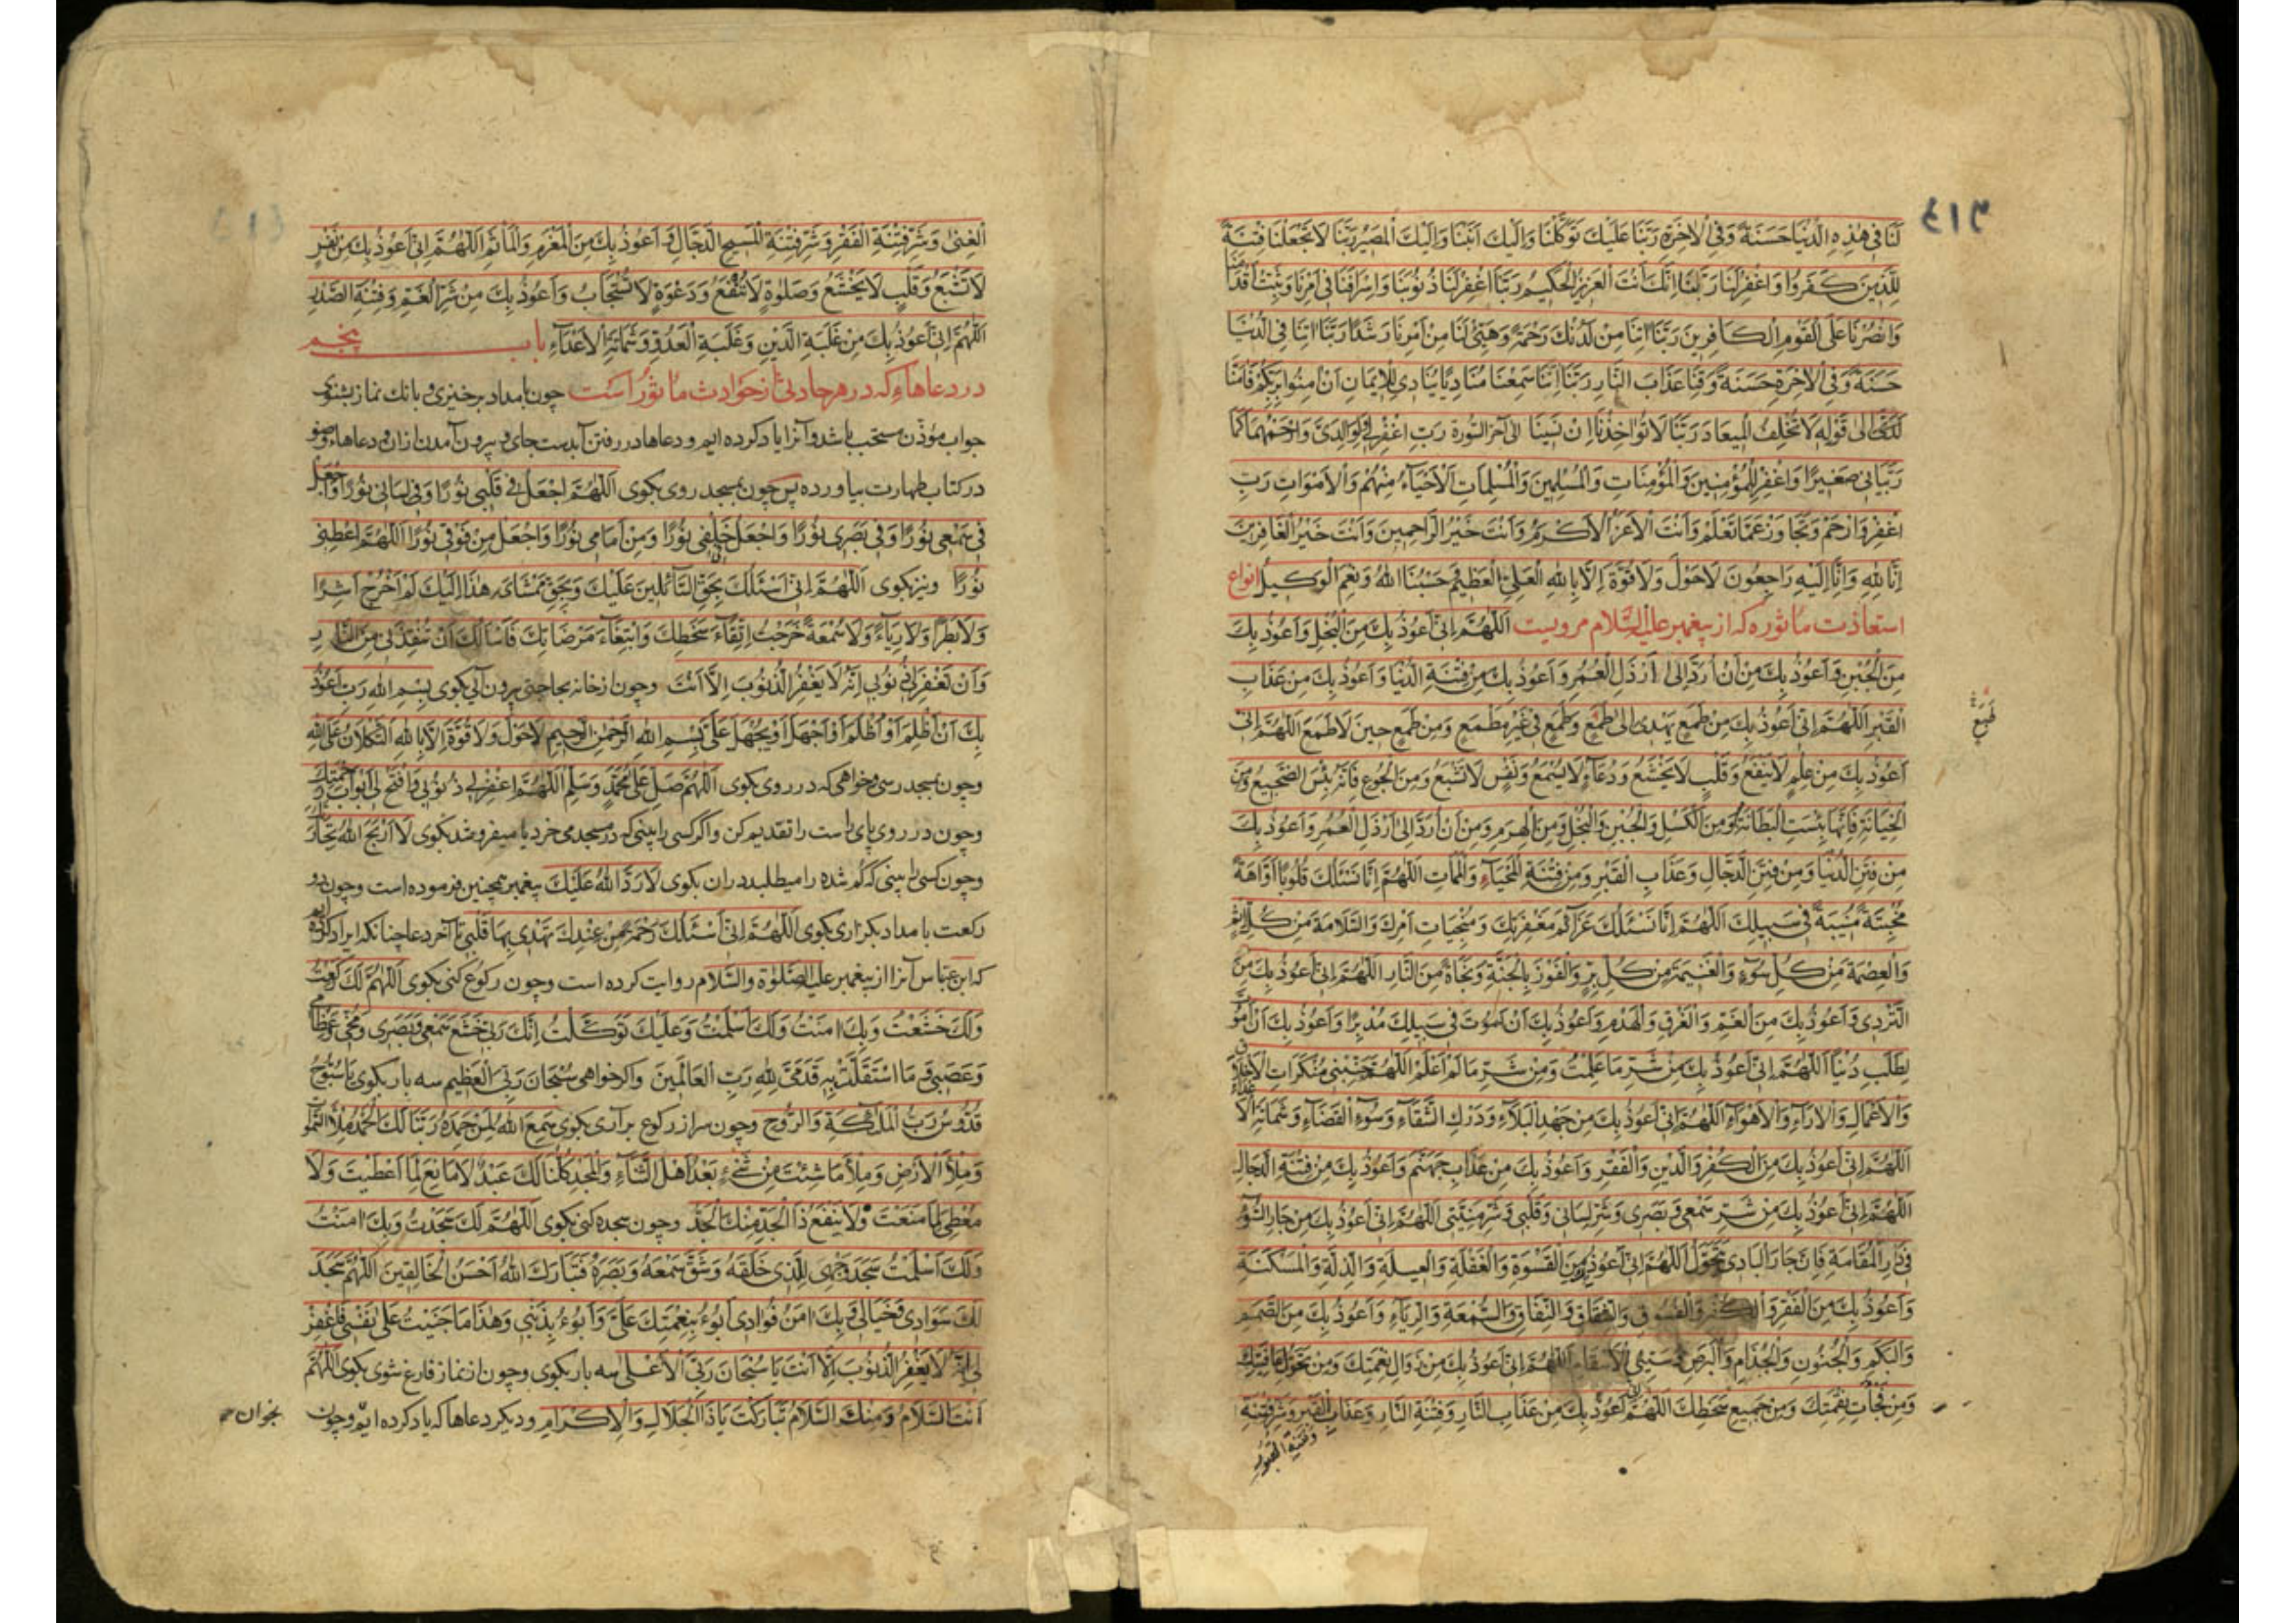 ٤١٣
لَنَا فِي هٰذِهِ الدُّنْيَا حَسَنَةً وَفِي الْاٰخِرَةِ رَبَّنَا عَلَيْكَ تَوَكَّلْنَا وَاِلَيْكَ اَنَبْنَا وَاِلَيْكَ الْمَصِيْرُ رَبَّنَا لَا تَجْعَلْنَا فِتْنَةً
لِلَّذِيْنَ كَفَرُوا وَاغْفِرْ لَنَا رَبَّنَا اِنَّكَ اَنْتَ الْعَزِيْزُ الْحَكِيْمُ رَبَّنَا اغْفِرْ لَنَا ذُنُوْبَنَا وَاِسْرَافَنَا فِي اَمْرِنَا وَثَبِّتْ اَقْدَامَنَا
وَانْصُرْنَا عَلَى الْقَوْمِ الْكَافِرِيْنَ رَبَّنَا اٰتِنَا مِنْ لَدُنْكَ رَحْمَةً وَهَيِّئْ لَنَا مِنْ اَمْرِنَا رَشَدًا رَبَّنَا اٰتِنَا فِي الدُّنْيَا
حَسَنَةً وَفِي الْاٰخِرَةِ حَسَنَةً وَقِنَا عَذَابَ النَّارِ رَبَّنَا اِنَّنَا سَمِعْنَا مُنَادِيًا يُنَادِي لِلْاِيْمَانِ اَنْ اٰمِنُوا بِرَبِّكُمْ فَاٰمَنَّا
اِلٰى قَوْلِهِ لَا تُخْلِفُ الْمِيْعَادَ رَبَّنَا لَا تُؤَاخِذْنَا اِنْ نَسِيْنَا اِلٰى اٰخِرِ السُّوْرَةِ رَبِّ اغْفِرْ لِي وَلِوَالِدَيَّ وَارْحَمْهُمَا كَمَا
رَبَّيَانِي صَغِيْرًا وَاغْفِرْ لِلْمُؤْمِنِيْنَ وَالْمُؤْمِنَاتِ وَالْمُسْلِمِيْنَ وَالْمُسْلِمَاتِ اَلْاَحْيَاءِ مِنْهُمْ وَالْاَمْوَاتِ رَبِّ
اغْفِرْ وَارْحَمْ وَتَجَاوَزْ عَمَّا تَعْلَمُ وَاَنْتَ الْاَعَزُّ الْاَكْرَمُ وَاَنْتَ خَيْرُ الرَّاحِمِيْنَ وَاَنْتَ خَيْرُ الْغَافِرِيْنَ
اِنَّا لِلّٰهِ وَاِنَّا اِلَيْهِ رَاجِعُوْنَ لَا حَوْلَ وَلَا قُوَّةَ اِلَّا بِاللّٰهِ الْعَلِيِّ الْعَظِيْمِ حَسْبُنَا اللّٰهُ وَنِعْمَ الْوَكِيْلُ انواع
استعاذت ماثوره كه از پيغمبر عليه السلام مرويست اَللّٰهُمَّ اِنِّي اَعُوْذُ بِكَ مِنَ الْبُخْلِ وَاَعُوْذُ بِكَ
مِنَ الْجُبْنِ وَاَعُوْذُ بِكَ مِنْ اَنْ اُرَدَّ اِلٰى اَرْذَلِ الْعُمُرِ وَاَعُوْذُ بِكَ مِنْ فِتْنَةِ الدُّنْيَا وَاَعُوْذُ بِكَ مِنْ عَذَابِ
الْقَبْرِ اَللّٰهُمَّ اِنِّي اَعُوْذُ بِكَ مِنْ طَمَعٍ يَهْدِي اِلٰى طَمَعٍ وَطَمَعٍ فِي غَيْرِ مَطْمَعٍ وَمِنْ طَمَعٍ حِيْنَ لَا طَمَعَ اَللّٰهُمَّ اِنِّي
اَعُوْذُ بِكَ مِنْ عِلْمٍ لَا يَنْفَعُ وَقَلْبٍ لَا يَخْشَعُ وَدُعَاءٍ لَا يُسْمَعُ وَنَفْسٍ لَا تَشْبَعُ وَمِنَ الْجُوْعِ فَاِنَّهُ بِئْسَ الضَّجِيْعُ وَمِنَ
الْخِيَانَةِ فَاِنَّهَا بِئْسَتِ الْبِطَانَةُ وَمِنَ الْكَسَلِ وَالْجُبْنِ وَالْبُخْلِ وَمِنَ الْهَرَمِ وَمِنْ اَنْ اُرَدَّ اِلٰى اَرْذَلِ الْعُمُرِ وَاَعُوْذُ بِكَ
مِنْ فِتَنِ الدُّنْيَا وَمِنْ فِتَنِ الدَّجَّالِ وَعَذَابِ الْقَبْرِ وَمِنْ فِتْنَةِ الْمَحْيَاءِ وَالْمَمَاتِ اَللّٰهُمَّ اِنَّا نَسْئَلُكَ قُلُوْبًا اَوَّاهَةً
مُخْبِتَةً مُنِيْبَةً فِي سَبِيْلِكَ اَللّٰهُمَّ اِنَّا نَسْئَلُكَ عَزَائِمَ مَغْفِرَتِكَ وَمُنْجِيَاتِ اَمْرِكَ وَالسَّلَامَةَ مِنْ كُلِّ اِثْمٍ
وَالْعِصْمَةَ مِنْ كُلِّ سُوْءٍ وَالْغَنِيْمَةَ مِنْ كُلِّ بِرٍّ وَالْفَوْزَ بِالْجَنَّةِ وَنَجَاةً مِنَ النَّارِ اَللّٰهُمَّ اِنِّي اَعُوْذُ بِكَ مِنَ
التَّرَدِّي وَاَعُوْذُ بِكَ مِنَ الْغَمِّ وَالْغَرَقِ وَالْهَدْمِ وَاَعُوْذُ بِكَ اَنْ اَمُوْتَ فِي سَبِيْلِكَ مُدْبِرًا وَاَعُوْذُ بِكَ اَنْ اَمُوْتَ
لِطَلَبِ دُنْيَا اَللّٰهُمَّ اِنِّي اَعُوْذُ بِكَ مِنْ شَرِّ مَا عَلِمْتُ وَمِنْ شَرِّ مَا لَمْ اَعْلَمْ اَللّٰهُمَّ جَنِّبْنِي مُنْكَرَاتِ الْاَخْلَاقِ
وَالْاَعْمَالِ وَالْاٰرَاءِ وَالْاَهْوَاءِ اَللّٰهُمَّ اِنِّي اَعُوْذُ بِكَ مِنْ جَهْدِ الْبَلَاءِ وَدَرَكِ الشَّقَاءِ وَسُوْءِ الْقَضَاءِ وَشَمَاتَةِ الْاَعْدَاءِ
اَللّٰهُمَّ اِنِّي اَعُوْذُ بِكَ مِنَ الْكُفْرِ وَالدَّيْنِ وَالْفَقْرِ وَاَعُوْذُ بِكَ مِنْ عَذَابِ جَهَنَّمَ وَاَعُوْذُ بِكَ مِنْ فِتْنَةِ الدَّجَّالِ
اَللّٰهُمَّ اِنِّي اَعُوْذُ بِكَ مِنْ شَرِّ سَمْعِي وَبَصَرِي وَشَرِّ لِسَانِي وَقَلْبِي وَشَرِّ مَنِيَّتِي اَللّٰهُمَّ اِنِّي اَعُوْذُ بِكَ مِنْ جَارِ السُّوْءِ
فِي دَارِ الْمُقَامَةِ فَاِنَّ جَارَ الْبَادِي يَتَحَوَّلُ اَللّٰهُمَّ اِنِّي اَعُوْذُ بِكَ مِنَ الْقَسْوَةِ وَالْغَفْلَةِ وَالْعِيْلَةِ وَالذِّلَّةِ وَالْمَسْكَنَةِ
وَاَعُوْذُ بِكَ مِنَ الْفَقْرِ وَالْكُفْرِ وَالْفُسُوْقِ وَالشِّقَاقِ وَالنِّفَاقِ وَالسُّمْعَةِ وَالرِّيَاءِ وَاَعُوْذُ بِكَ مِنَ الصَّمَمِ
وَالْبَكَمِ وَالْجُنُوْنِ وَالْجُذَامِ وَالْبَرَصِ وَسَيِّئِ الْاَسْقَامِ اَللّٰهُمَّ اِنِّي اَعُوْذُ بِكَ مِنْ زَوَالِ نِعْمَتِكَ وَمِنْ تَحَوُّلِ عَافِيَتِكَ
وَمِنْ فُجَاءَةِ نِقْمَتِكَ وَمِنْ جَمِيْعِ سَخَطِكَ اَللّٰهُمَّ اِنِّي اَعُوْذُ بِكَ مِنْ عَذَابِ النَّارِ وَفِتْنَةِ النَّارِ وَعَذَابِ الْقَبْرِ وَشَرِّ فِتْنَةِ
الْغِنٰى وَشَرِّ فِتْنَةِ الْفَقْرِ وَشَرِّ فِتْنَةِ الْمَسِيْحِ الدَّجَّالِ وَاَعُوْذُ بِكَ مِنَ الْمَغْرَمِ وَالْمَأْثَمِ اَللّٰهُمَّ اِنِّي اَعُوْذُ بِكَ مِنْ نَفْسٍ
لَا تَشْبَعُ وَقَلْبٍ لَا يَخْشَعُ وَصَلٰوةٍ لَا تَنْفَعُ وَدَعْوَةٍ لَا تُسْتَجَابُ وَاَعُوْذُ بِكَ مِنْ شَرِّ الْغَمِّ وَفِتْنَةِ الصَّدْرِ
اَللّٰهُمَّ اِنِّي اَعُوْذُ بِكَ مِنْ غَلَبَةِ الدَّيْنِ وَغَلَبَةِ الْعَدُوِّ وَشَمَاتَةِ الْاَعْدَاءِ باب پنجم
در دعاهاء كه در هر حادثى از حوادث ماثور است چون بامداد برخيزى و بانك نماز بشنوى
جواب مؤذن مستحب باشد و آنرا ياد كرده ايم و دعاها در رفتن آبدست جاى و بيرون آمدن ازان و دعاهاء وضو
در كتاب طهارت بياورده پس چون بمسجد روى بكوى اَللّٰهُمَّ اجْعَلْ فِي قَلْبِي نُوْرًا وَفِي لِسَانِي نُوْرًا وَاجْعَلْ
فِي سَمْعِي نُوْرًا وَفِي بَصَرِي نُوْرًا وَاجْعَلْ خَلْفِي نُوْرًا وَمِنْ اَمَامِي نُوْرًا وَاجْعَلْ مِنْ فَوْقِي نُوْرًا اَللّٰهُمَّ اَعْطِنِي
نُوْرًا ونيز بكوى اَللّٰهُمَّ اِنِّي اَسْئَلُكَ بِحَقِّ السَّائِلِيْنَ عَلَيْكَ وَبِحَقِّ مَمْشَايَ هٰذَا اِلَيْكَ لَمْ اَخْرُجْ اَشَرًا
وَلَا بَطَرًا وَلَا رِيَاءً وَلَا سُمْعَةً خَرَجْتُ اِتِّقَاءَ سَخَطِكَ وَابْتِغَاءَ مَرْضَاتِكَ فَاَسْاَلُكَ اَنْ تُنْقِذَنِي مِنَ النَّارِ
وَاَنْ تَغْفِرَ لِي ذُنُوْبِي اِنَّهُ لَا يَغْفِرُ الذُّنُوْبَ اِلَّا اَنْتَ وچون از خانه بحاجتى بيرون آئى بكوى بِسْمِ اللّٰهِ رَبِّ اَعُوْذُ
بِكَ اَنْ اَظْلِمَ اَوْ اُظْلَمَ اَوْ اَجْهَلَ اَوْ يُجْهَلَ عَلَيَّ بِسْمِ اللّٰهِ الرَّحْمٰنِ الرَّحِيْمِ لَا حَوْلَ وَلَا قُوَّةَ اِلَّا بِاللّٰهِ التُّكْلَانُ عَلَى اللّٰهِ
وچون بمسجد رسى وخواهى كه در روى بكوى اَللّٰهُمَّ صَلِّ عَلٰى مُحَمَّدٍ وَسَلِّمْ اَللّٰهُمَّ اغْفِرْ لِي ذُنُوْبِي وَافْتَحْ لِي اَبْوَابَ رَحْمَتِكَ
وچون در روى پاى راست را تقديم كن واكر كسى را بينى كه در مسجد مى خرد يا ميفروشد بكوى لَا اَرْبَحَ اللّٰهُ تِجَارَتَكَ
وچون كسى را بينى كه كم شده را ميطلبد دران بكوى لَا رَدَّ اللّٰهُ عَلَيْكَ پيغمبر همچنين فرموده است وچون دو
ركعت بامداد بكزارى بكوى اَللّٰهُمَّ اِنِّي اَسْئَلُكَ رَحْمَةً مِنْ عِنْدِكَ تَهْدِي بِهَا قَلْبِي تا آخر دعا چنانكه ايراد كرده ايم
كه ابن عباس آنرا از پيغمبر عليه الصلوة والسلام روايت كرده است وچون ركوع كنى بكوى اَللّٰهُمَّ لَكَ رَكَعْتُ
وَلَكَ خَشَعْتُ وَبِكَ اٰمَنْتُ وَلَكَ اَسْلَمْتُ وَعَلَيْكَ تَوَكَّلْتُ اِنَّكَ رَبِّي خَشَعَ سَمْعِي وَبَصَرِي وَمُخِّي وَعِظَامِي
وَعَصَبِي وَمَا اسْتَقَلَّتْ بِهِ قَدَمَيَّ لِلّٰهِ رَبِّ الْعَالَمِيْنَ واكر خواهى سُبْحَانَ رَبِّيَ الْعَظِيْمِ سه بار بكوى يا سُبُّوْحٌ
قُدُّوْسٌ رَبُّ الْمَلَائِكَةِ وَالرُّوْحِ وچون سر از ركوع برآرى بكوى سَمِعَ اللّٰهُ لِمَنْ حَمِدَهُ رَبَّنَا لَكَ الْحَمْدُ مِلْأَ السَّمٰوَاتِ
وَمِلْأَ الْاَرْضِ وَمِلْأَ مَا شِئْتَ مِنْ شَيْءٍ بَعْدُ اَهْلَ الثَّنَاءِ وَالْمَجْدِ كُلُّنَا لَكَ عَبْدٌ لَا مَانِعَ لِمَا اَعْطَيْتَ وَلَا
مُعْطِيَ لِمَا مَنَعْتَ وَلَا يَنْفَعُ ذَا الْجَدِّ مِنْكَ الْجَدُّ وچون سجده كنى بكوى اَللّٰهُمَّ لَكَ سَجَدْتُ وَبِكَ اٰمَنْتُ
وَلَكَ اَسْلَمْتُ سَجَدَ وَجْهِي لِلَّذِي خَلَقَهُ وَشَقَّ سَمْعَهُ وَبَصَرَهُ فَتَبَارَكَ اللّٰهُ اَحْسَنُ الْخَالِقِيْنَ اَللّٰهُمَّ سَجَدَ
لَكَ سَوَادِي وَخَيَالِي وَبِكَ اٰمَنَ فُؤَادِي اَبُوْءُ بِنِعْمَتِكَ عَلَيَّ وَاَبُوْءُ بِذَنْبِي وَهٰذَا مَا جَنَيْتُ عَلٰى نَفْسِي فَاغْفِرْ
لِي اِنَّهُ لَا يَغْفِرُ الذُّنُوْبَ اِلَّا اَنْتَ يَا سُبْحَانَ رَبِّيَ الْاَعْلٰى سه بار بكوى وچون از نماز فارغ شوى بكوى اَللّٰهُمَّ
اَنْتَ السَّلَامُ وَمِنْكَ السَّلَامُ تَبَارَكْتَ يَا ذَا الْجَلَالِ وَالْاِكْرَامِ وديكر دعاها كه ياد كرده ايم وچون